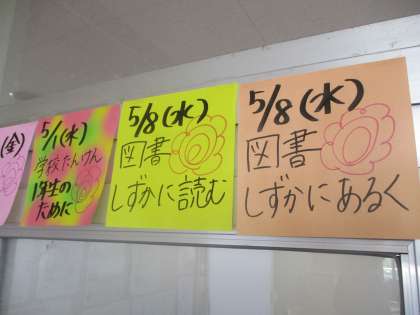 (金)
5/1(水)
学校たんけん
1年生の
ために
5/8(水)
図書
しずかに読む
5/8(水)
図書
しずかにあるく